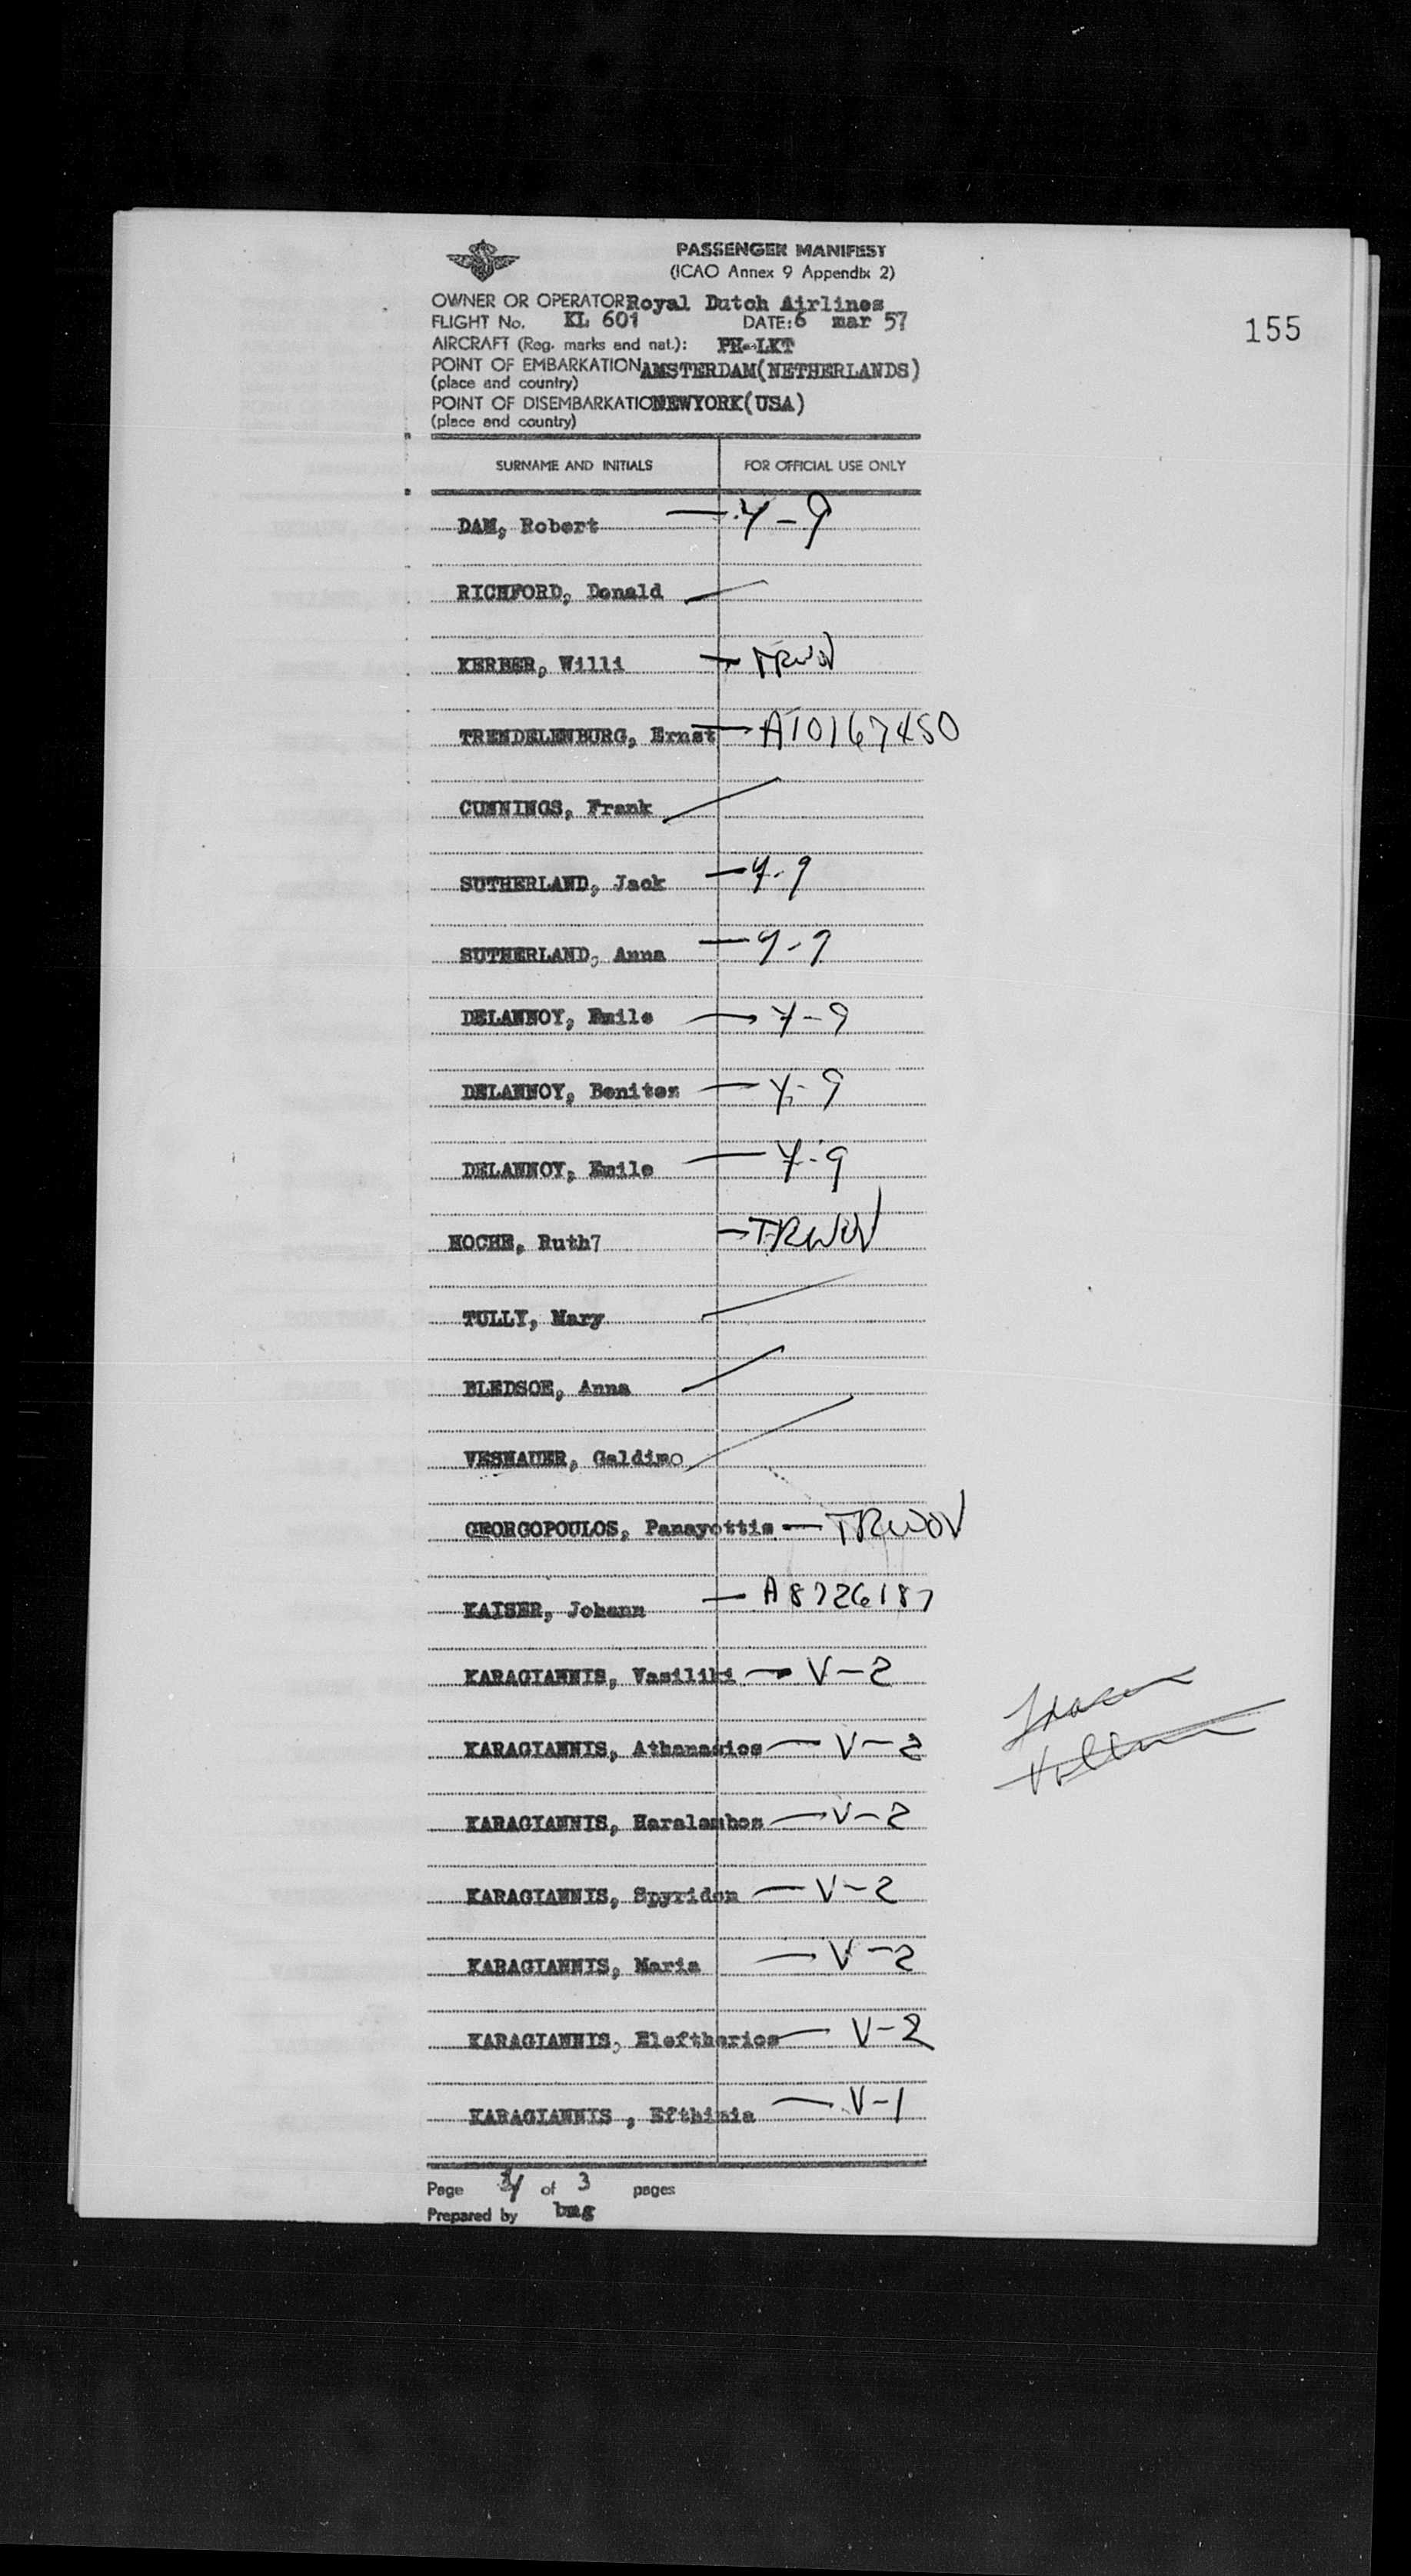 PASSENGER MANIFEST
(ICAO Annex 9 Appendix 2)
OWNER OR OPERATOR Royal Dutch Airlines
FLIGHT No. KL 601 DATE: 6 mar 57
155
AIRCRAFT (Reg. marks and nat.): PH-LKT
POINT OF EMBARKATION AMSTERDAM(NETHERLANDS)
(place and country)
POINT OF DISEMBARKATION NEWYORK(USA)
(place and country)
SURNAME AND INITIALS FOR OFFICIAL USE ONLY
DAM, Robert — 4-9
RICHFORD, Donald
KERBER, Willi — TRWOV
TRENDELENBURG, Ernst — A10167450
CUNNINGS, Frank
SUTHERLAND, Jack — 4-9
SUTHERLAND, Anna — 4-9
DELANNOY, Emile — 4-9
DELANNOY, Benitez — 4-9
DELANNOY, Emile — 4-9
HOCHE, Ruth7 — TRWOV
TULLY, Mary
BLEDSOE, Anna
VESNAUER, Galdino
GEORGOPOULOS, Panayottis — TRWOV
KAISER, Johann — A8726187
KARAGIANNIS, Vasiliki — V-2
KARAGIANNIS, Athanasios — V-2
KARAGIANNIS, Haralambos — V-2
KARAGIANNIS, Spyridon — V-2
KARAGIANNIS, Maria — V-2
KARAGIANNIS, Eleftherios — V-2
KARAGIANNIS , Efthimia — V-1
Page of 3 pages
Prepared by bmg